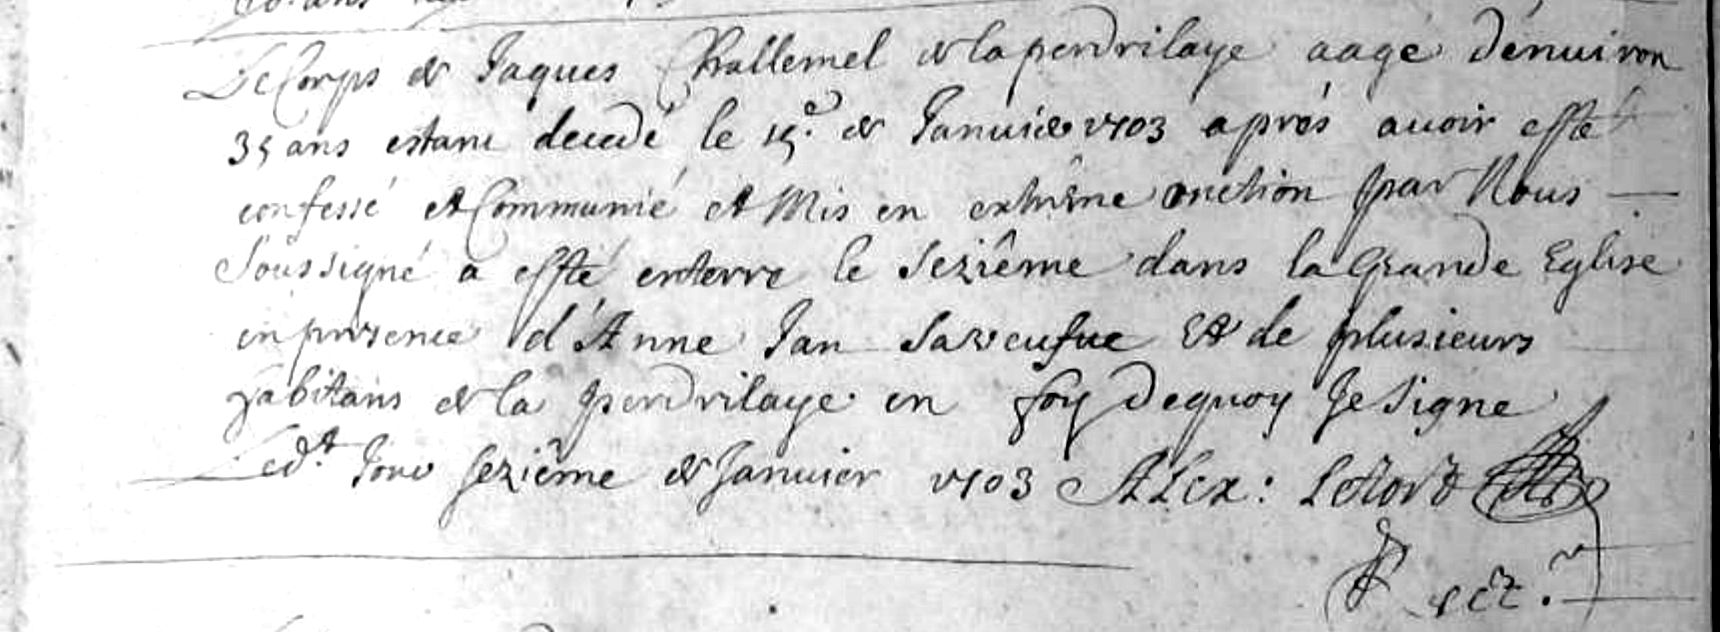 Le Corps de Jaques Challemel de la perdrilaye aagé d'enuiron
35 ans estant decedé le 15.e de Januier 1703 aprés auoir esté
confessé et Communié et Mis en extrême onction par Nous
Soussigné a esté enterre le Seziême dans la Grande Eglise
en presence d'Anne Jan Sa veufue Et de plusieurs
habitans de la perdrilaye en foy dequoy Je Signe
Led.t Jour seziême de Januier 1703 ALex: Letord